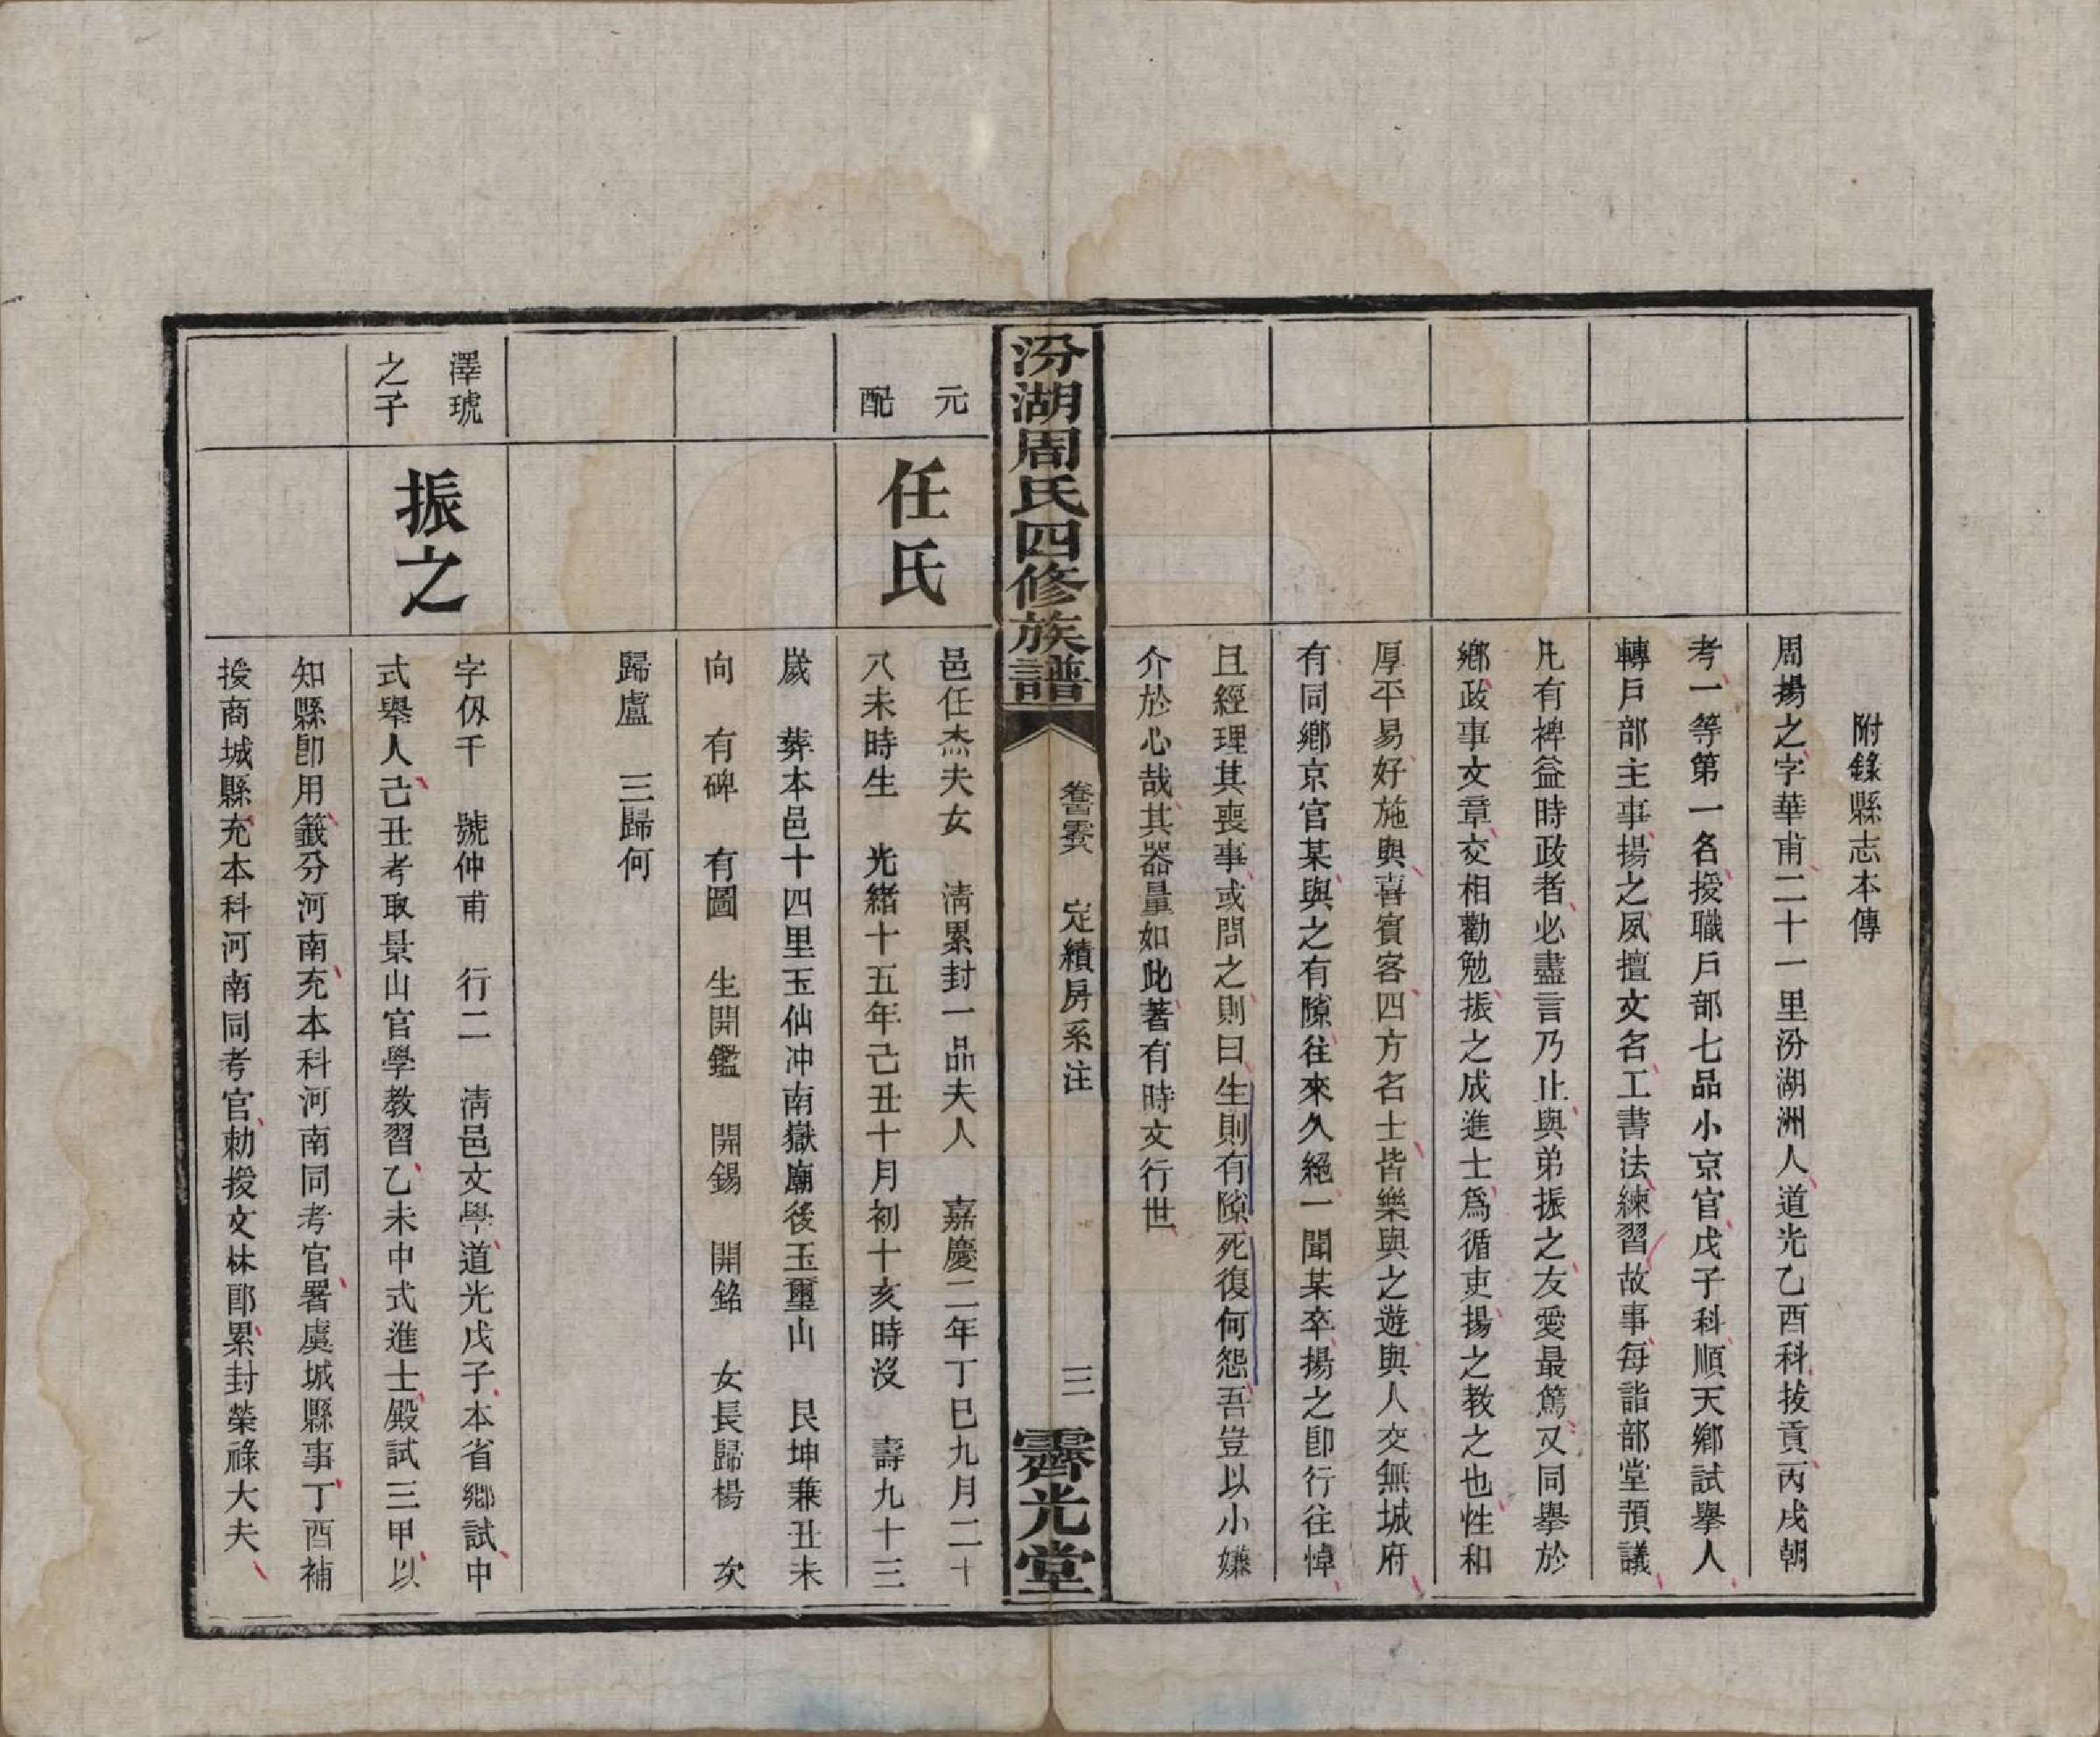 附錄縣志本傳
周揚之字華甫二十一里汾湖洲人道光乙酉科拔貢丙戌朝
考一等第一名授職戶部七品小京官戊子科順天鄉試舉人
轉戶部主事揚之夙擅文名工書法練習故事每詣部堂預議
凡有裨益時政者必盡言乃止與弟振之友愛最篤又同舉於
鄉政事文章交相勸勉振之成進士為循吏揚之教之也性和
厚平易好施與喜賓客四方名士皆樂與之遊與人交無城府
有同鄉京官某與之有隙往來久絕一聞某卒揚之卽行往悼
且經理其喪事或問之則曰生則有隙死復何怨吾豈以小嫌
介於心哉其器量如此著有時文行世
汾湖周氏四修族譜
定績房系注
三
霽光堂
元配
任氏
邑任杰夫女 清累封一品夫人 嘉慶二年丁巳九月二十
八未時生 光緒十五年己丑十月初十亥時沒 壽九十三
歲 葬本邑十四里玉仙冲南嶽廟後玉璽山 艮坤兼丑未
向 有碑 有圖 生開鑑 開錫 開銘 女長歸楊 次
歸盧 三歸何
澤琥之子
振之
字仭千 號仲甫 行二 清邑文學道光戊子本省鄉試中
式舉人己丑考取景山官學教習乙未中式進士殿試三甲以
知縣卽用籤分河南充本科河南同考官署虞城縣事丁酉補
授商城縣充本科河南同考官勅授文林郎累封榮祿大夫